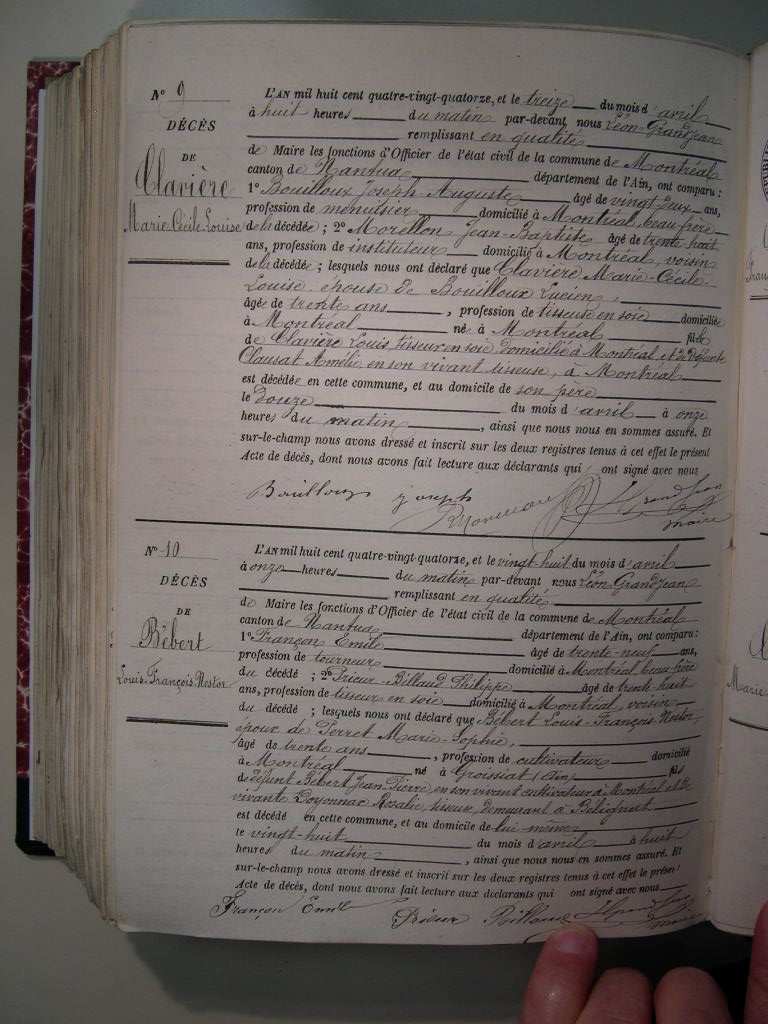 N° 9
DÉCÈS
DE
Clavière
Marie Cécile Louise
L'AN mil huit cent quatre-vingt-quatorze, et le treize du mois d'avril
à huit heures du matin par-devant nous Léon Grandjean
remplissant en qualité
de Maire les fonctions d'Officier de l'état civil de la commune de Montréal
canton de Nantua département de l'Ain, ont comparu :
1° Bouilloux Joseph Auguste âgé de vingt deux ans,
profession de menuisier domicilié à Montréal, beau frère
de la décédée ; 2° Morellon Jean-Baptiste âgé de trente huit
ans, profession de instituteur domicilié à Montréal, voisin
de la décédée ; lesquels nous ont déclaré que Clavière Marie-Cécile-
Louise épouse de Bouilloux Lucien,
âgée de trente ans, profession de tisseuse en soie domiciliée
à Montréal née à Montréal fille
de Clavière Louis, tisseur en soie, domicilié à Montréal et de défunte
Clausat Amélie, en son vivant tisseuse, à Montréal
est décédée en cette commune, et au domicile de son père
le douze du mois d'avril à onze
heures du matin, ainsi que nous nous en sommes assuré. Et
sur-le-champ nous avons dressé et inscrit sur les deux registres tenus à cet effet le présent
Acte de décès, dont nous avons fait lecture aux déclarants qui ont signé avec nous
Bouilloux joseph
Grandjean
maire
N° 10
DÉCÈS
DE
Bébert
Louis-François Nestor
L'AN mil huit cent quatre-vingt-quatorze, et le vingt-huit du mois d'avril
à onze heures du matin par-devant nous Léon Grandjean
remplissant en qualité
de Maire les fonctions d'Officier de l'état civil de la commune de Montréal
canton de Nantua département de l'Ain, ont comparu :
1° Françon Emile âgé de trente neuf ans,
profession de tourneur domicilié à Montréal beau frère
du décédé ; 2° Prieur-Billaud Philippe âgé de trente huit
ans, profession de tisseur en soie domicilié à Montréal, voisin
du décédé ; lesquels nous ont déclaré que Bébert Louis-François-Nestor,
époux de Perret Marie-Sophie,
âgé de trente ans, profession de cultivateur domicilié
à Montréal né à Groissiat (Ain) fils
de défunt Bébert Jean-Pierre en son vivant cultivateur à Montréal et de
vivante Rosalie, tisseuse, demeurant à Bélignat
est décédé en cette commune, et au domicile de lui-même
le vingt-huit du mois d'avril à huit
heures du matin, ainsi que nous nous en sommes assuré. Et
sur-le-champ nous avons dressé et inscrit sur les deux registres tenus à cet effet le présent
Acte de décès, dont nous avons fait lecture aux déclarants qui ont signé avec nous
Françon Emile
Prieur Billaud
Grandjean
maire
Marie